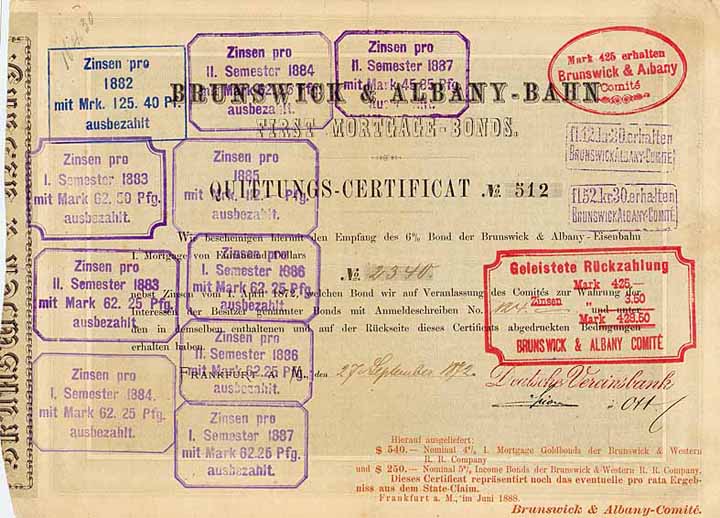 Zinsen pro
1882
mit Mrk. 125. 40 Pf.
ausbezahlt
Zinsen pro
II. Semester 1884
mit Mark 62. 25 Pfg.
ausbezahlt.
Zinsen pro
II. Semester 1887
mit Mark 45. 35 Pfg.
Mark 425 erhalten
Brunswick & Albany
Comité
BRUNSWICK & ALBANY-BAHN
FIRST MORTGAGE-BONDS.
fl.12.kr.30.erhalten
BRUNSWICK ALBANY-COMITÉ
Zinsen pro
I. Semester 1883
mit Mark 62. 50 Pfg.
ausbezahlt.
Zinsen pro
1885
mit Mark
ausbezahlt.
QUITTUNGS-CERTIFICAT № 512
fl.52.kr.30.erhalten
BRUNSWICK ALBANY-COMITÉ
Wir bescheinigen hiermit den Empfang des 6% Bond der Brunswick & Albany-Eisenbahn
I. Mortgage von Eintausend Dollars
№ 2340.
nebst Zinsen vom 1. April 1872, welchen Bond wir auf Veranlassung des Comités zur Wahrung der
Interessen der Besitzer genannter Bonds mit Anmeldeschreiben No. 124. und unter
den in demselben enthaltenen und auf der Rückseite dieses Certificats abgedruckten Bedingungen
erhalten haben.
Zinsen pro
II. Semester 1883
mit Mark 62. 25 Pfg.
ausbezahlt.
Zinsen pro
I. Semester 1886
mit Mark 62. 25 Pfg.
ausbezahlt.
Geleistete Rückzahlung
Mark 425.—
Zinsen " 3.50
Mark 428.50
BRUNSWICK & ALBANY COMITÉ
FRANKFURT A. M., den 27 September 1872.
Zinsen pro
II. Semester 1886
mit Mark 62. 25 Pfg.
ausbezahlt.
Deutsche Vereinsbank
Zinsen pro
I. Semester 1884.
mit Mark 62. 25 Pfg.
ausbezahlt.
Zinsen pro
I. Semester 1887
mit Mark 62. 25 Pfg.
ausbezahlt.
Hierauf ausgeliefert:
$ 540.— Nominal 4% I. Mortgage Goldbonds der Brunswick & Western
R. R. Company
und $ 250.— Nominal 5% Income Bonds der Brunswick & Western R. R. Company.
Dieses Certificat repräsentirt noch das eventuelle pro rata Ergeb-
niss aus dem State-Claim.
Frankfurt a. M., im Juni 1888.
Brunswick & Albany-Comité.